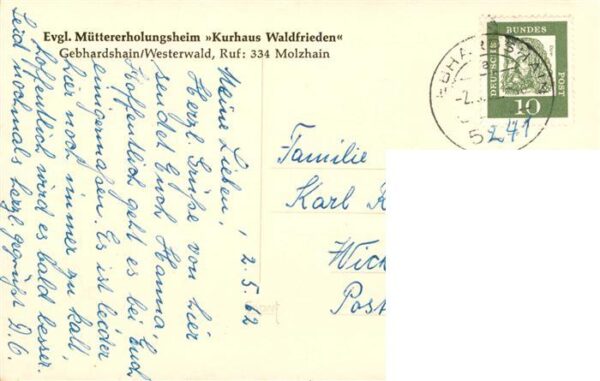 Evgl. Müttererholungsheim »Kurhaus Waldfrieden«
Gebhardshain/Westerwald, Ruf: 334 Molzhain
2.5.62
Meine Lieben,
Herzl. Grüße von hier
sendet Euch Hanna,
Hoffentlich geht es bei Euch
einigermaßen. Es ist leider
hier noch immer zu kalt,
hoffentlich wird es bald besser.
Seid nochmals herzl. gegrüßt D. O.
Familie
Karl
Wic
Post
DEUTSCHE BUNDES POST
10
5241